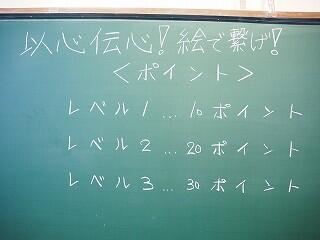 以心伝心!絵で繋げ!
＜ポイント＞
レベル1…10ポイント
レベル2…20ポイント
レベル3…30ポイント